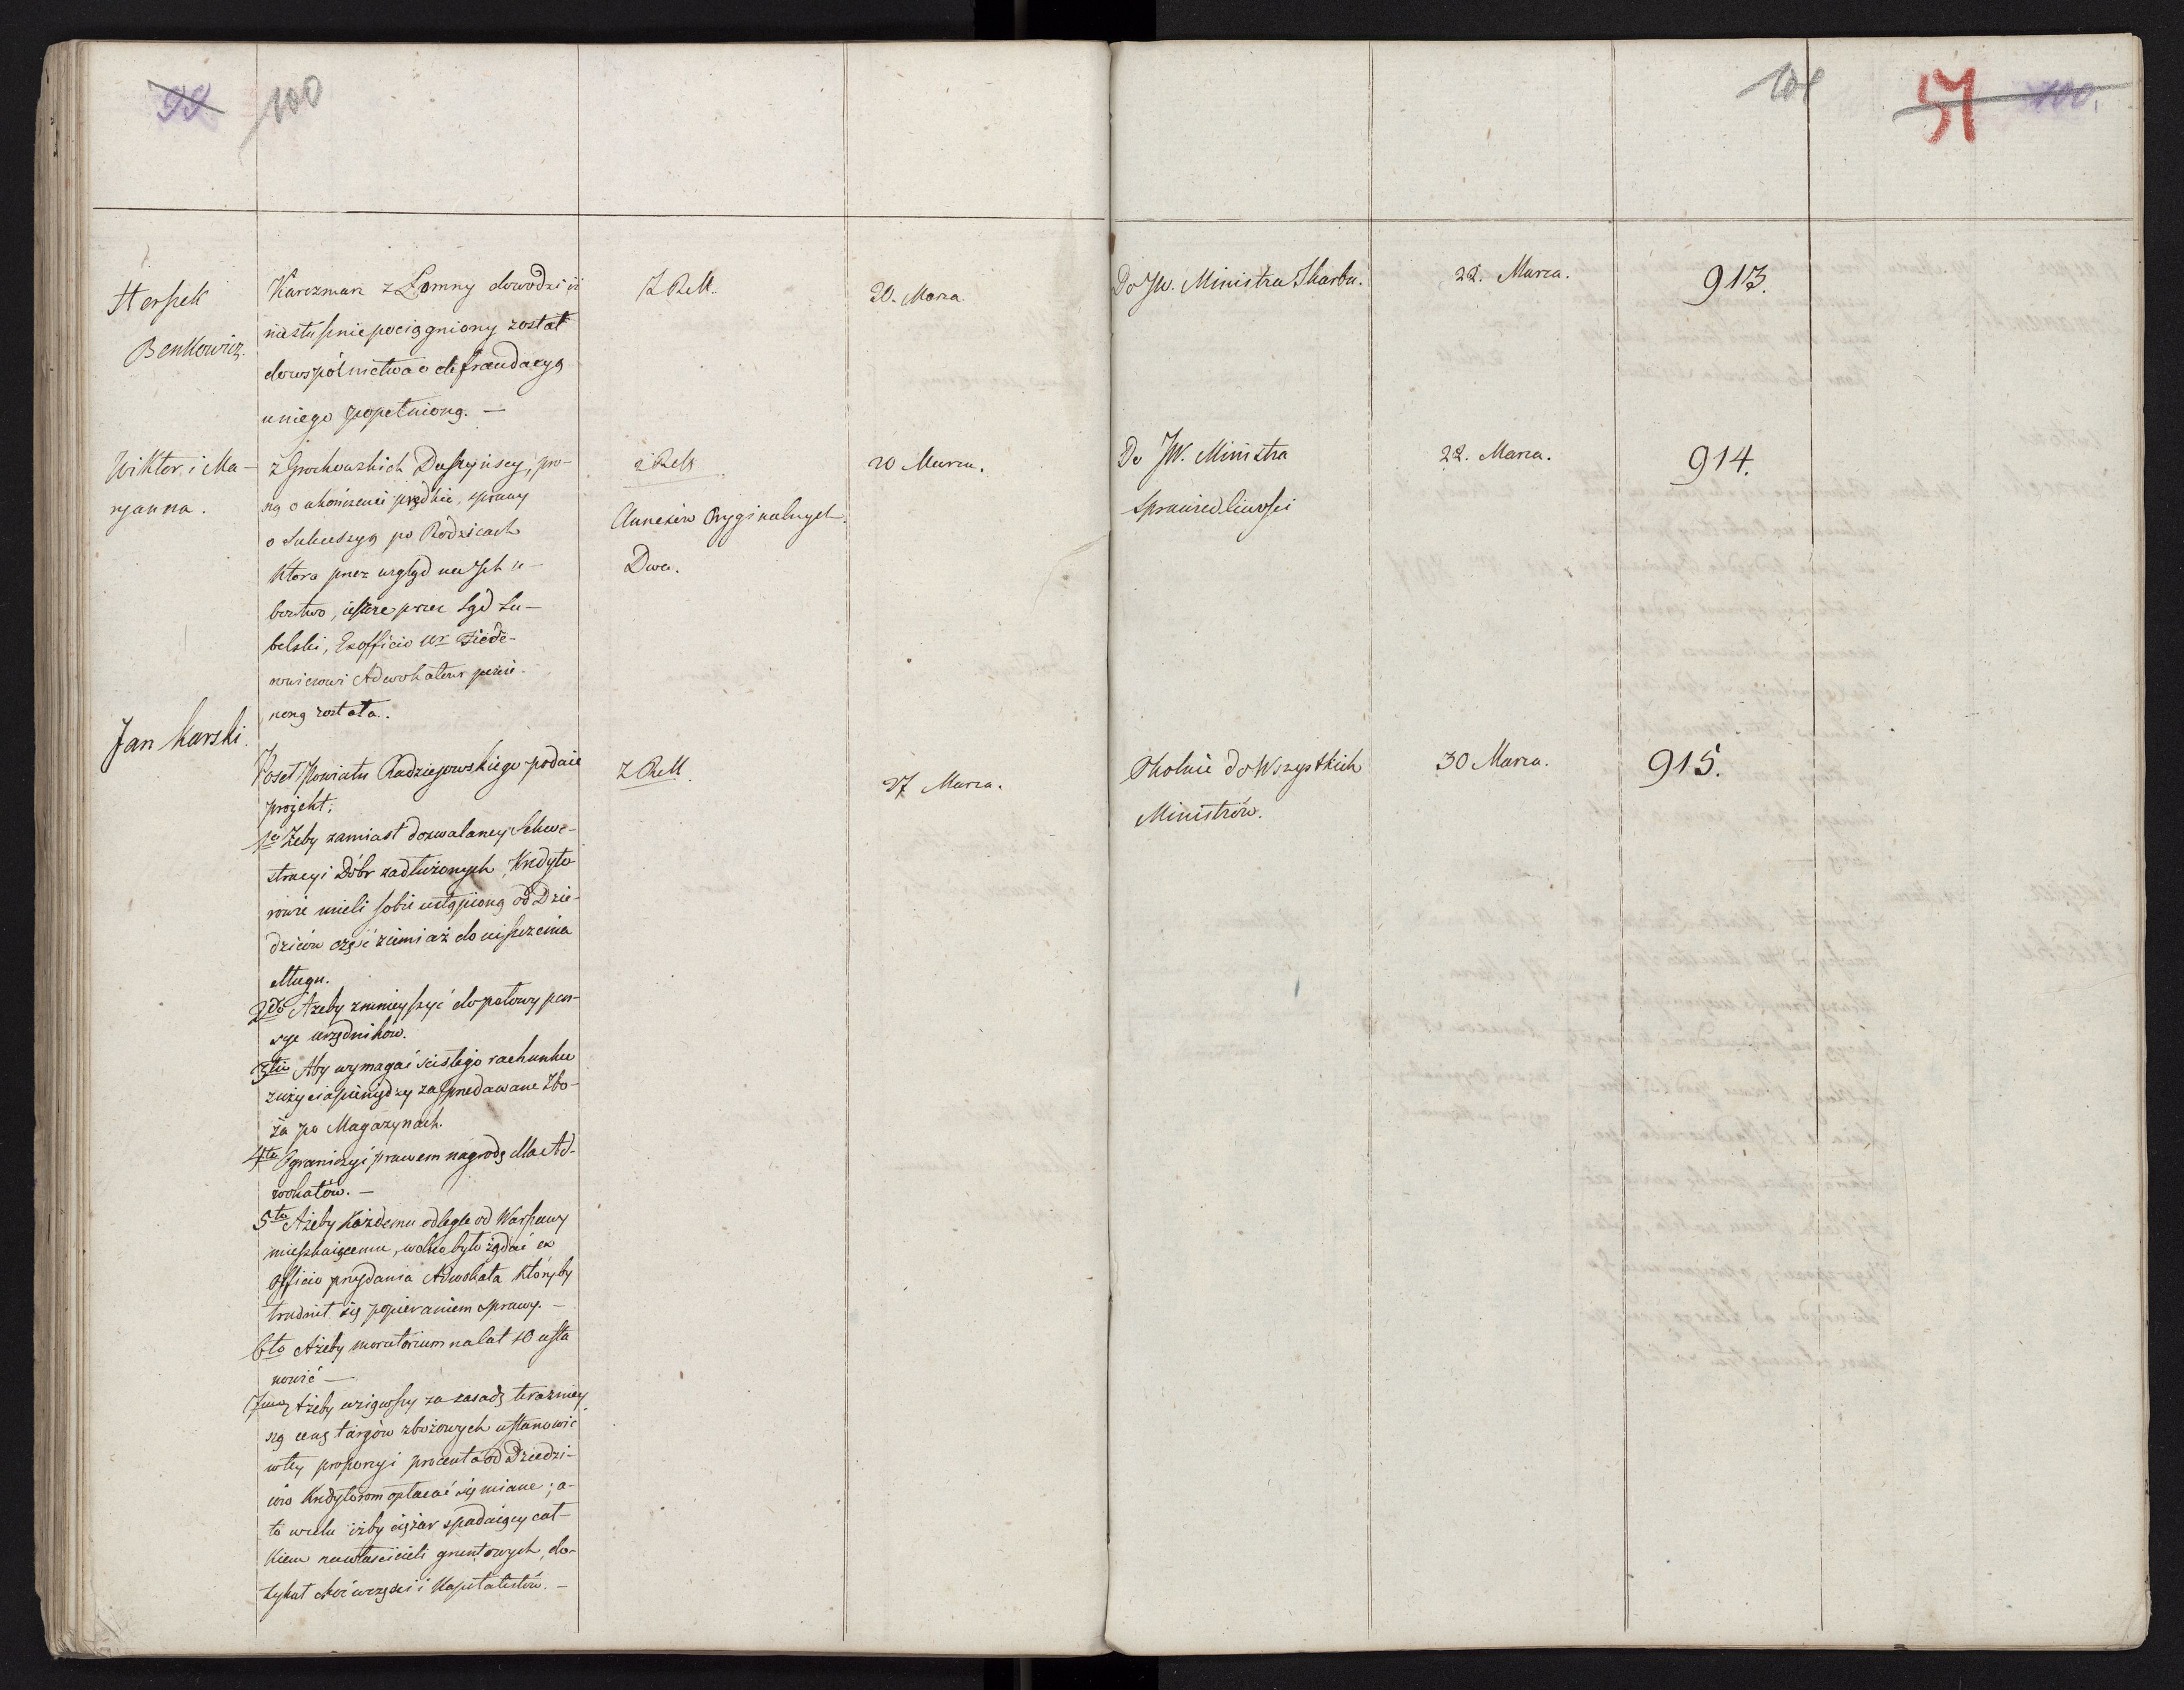 99 100
101 51 100.
Herszek
Benkowicz.
Karczmarz z Łomny dowodzi iż
niesłusznie pociągniony został
do wspólnictwa o defraudacyą
u niego popełnioną. —
20. Marca
Do JW. Ministra Skarbu.
22. Marca.
913.
Wiktor i Ma-
ryanna.
z Grochowskich Duszyńscy, pro-
szą o ukończenie prędkie sprawy
o Sukcessyą po Rodzicach
Ktora przez wzgląd na Ich u-
bóstwo, ieszcze przez Sąd Lu-
belski, Exofficio Ur
Adwokatowi
ną została.
Annexów Oryginalnych.
Dwa.
20 Marca.
Do JW. Ministra
Sprawiedliwości
22. Marca.
914.
Jan Karski.
Poseł Powiatu Radziejowskiego podaie
projekt:
1o Żeby zamiast dozwalaney Sekwe-
stracyi Dóbr zadłużonych, Kredyto
rowie mieli sobie ustąpioną od Dzie-
dziców część ziemi aż do uiszczenia
długu.
2do Ażeby zmnieyszyć do połowy pen-
sye urzędników.
3tio Aby wymagać ścisłego rachunku
z użycia pieniędzy za sprzedawane Zbo-
ża po Magazynach.
4to Ograniczyć prawem nagrodę dla Ad-
wokatów. —
5to Ażeby każdemu odległe od Warszawy
mieszkaiącemu, wolno było żądać ex
officio przydania Adwokata któryby
trudnił się popieraniem sprawy. —
6to Ażeby moratorium na lat 10 usta
nowić —
7mo Ażeby wziąwszy za zasadę teraźniey
szą cenę targów zbożowych ustanowić
w tey proporcyi procenta od Dziedzi-
ców Kredytorom opłacać się miane; a-
to w celu iżby ciężar spadaiący cał-
kiem na właścicieli gruntowych, do-
tykał choć w części i Kapitalistów. —
27 Marca.
Okolnie do Wszystkich
Ministrów.
30 Marca.
915.